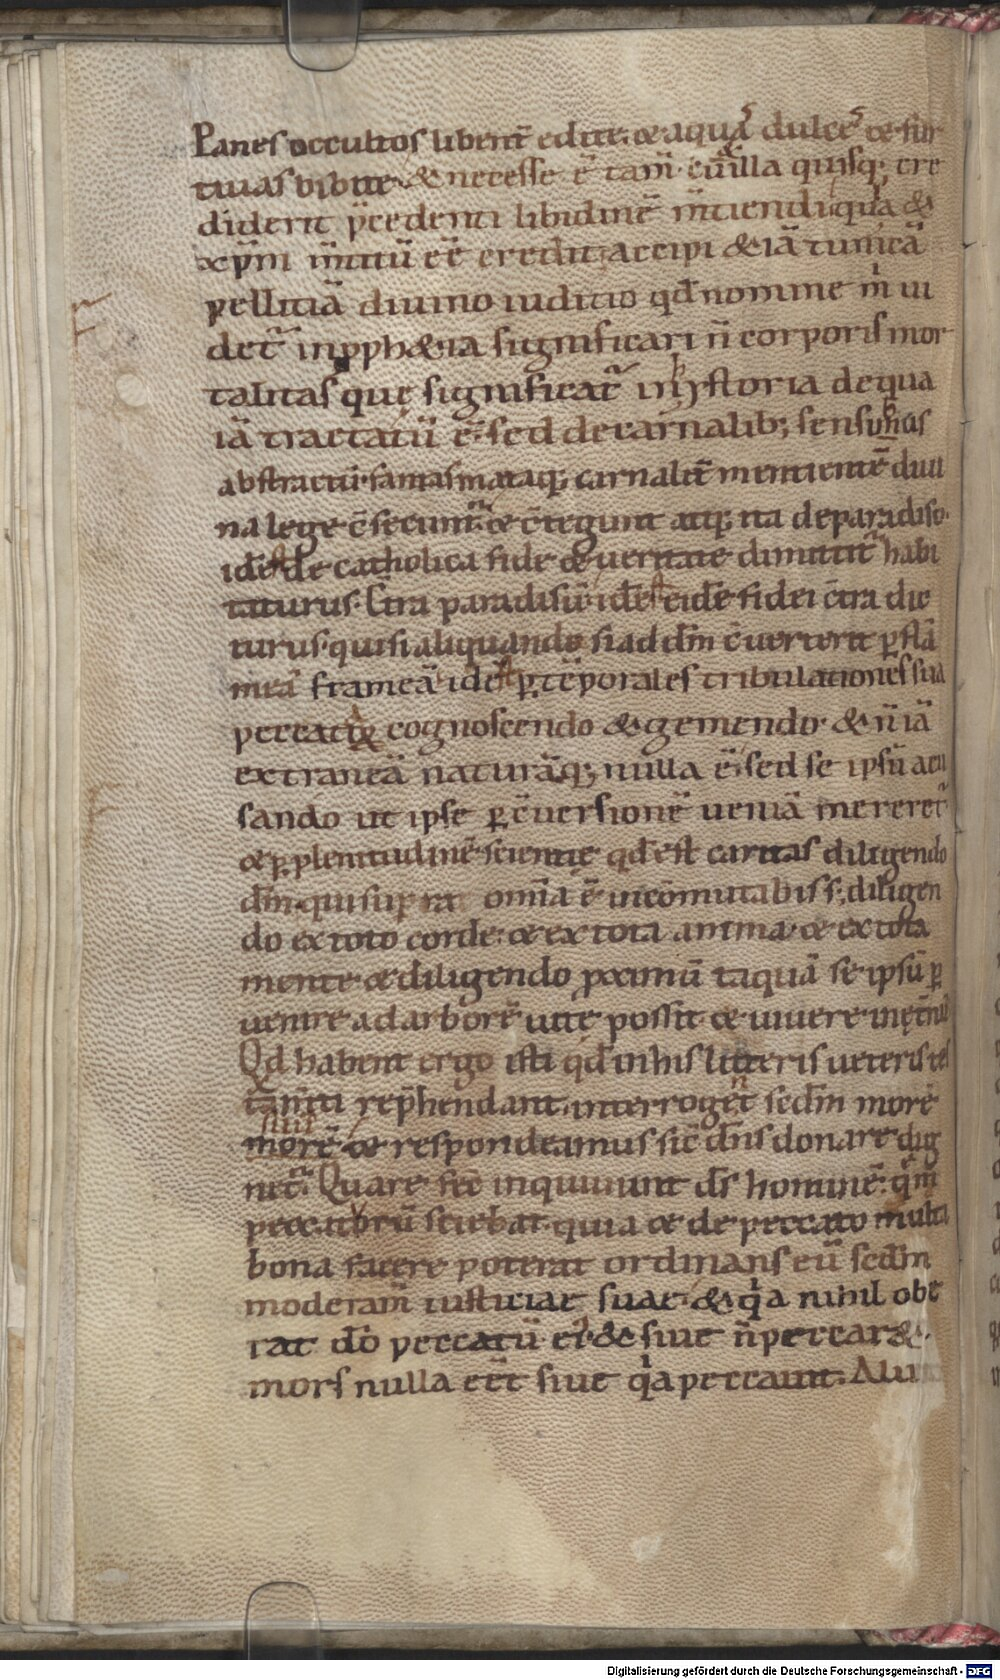 Panes occultos libent̄ edite. & aquā dulcē & fur
tiuas bibite. & necesse ē tam̄ cū illa quisq; cre
diderit p̄cedenti libidinē m̄tiendi. q̇a &
xp̄m m̄titū eē credit. accipi & iā tunicā
pelliciā diuino iuditio. qđ nomine m̄ ui
det̄ in pph&ia significari n̄ corporis mor
talitas quę significat̄ in hystoria de qua
iā tractatū ē. sed de carnalib; sensib;
abstractū. fantasmataq; carnalit̄ mentientē diui
na lege c̄secunt̄ & c̄tegunt atq; ita de paradiso.
idest de catholica fide & ueritate dimittit̄ habi
taturus c̄tra paradisū. idest eidē fidei c̄tra dic
turus. qui si aliquando si ad dm̄ c̄uerterit p flā
meā frameā idest p tēporales tribulationes sua
peccata cognoscendo & gemendo. & n̄ iā
extraneā naturā q; nulla ē. sed se ipsū accu
sando ut ipse p c̄uersionē ueniā mereret̄
& p plenitudinē scientię qđ est caritas diligendo
dm̄. qui sup omīa ē incōmutabis s; diligen
do ex toto corde. & ex tota anima. & ex tota
mente & diligendo pximū taquā se ipsū p
uenire ad arborē uitę possit & uiuere in
Qđ habent ergo isti qđ in his litteris ueteris tes
tam̄ti rep̄hendant. interrogent sedm̄ morē
suū
morē & respondeamus sic dn̄s donare dig
net̄. Quare fec̄ inquiunt ds̄ hominē. quē
peccaturū sciebat. quia & de peccato multa
bona facere poterat ordinans eū sedm̄
moderam̄ iusticiae suae. & q̇a nihil obe
rat dō peccatū ei &sīue n̄ peccar&.
mors nulla eēt siue q̇a peccauit.